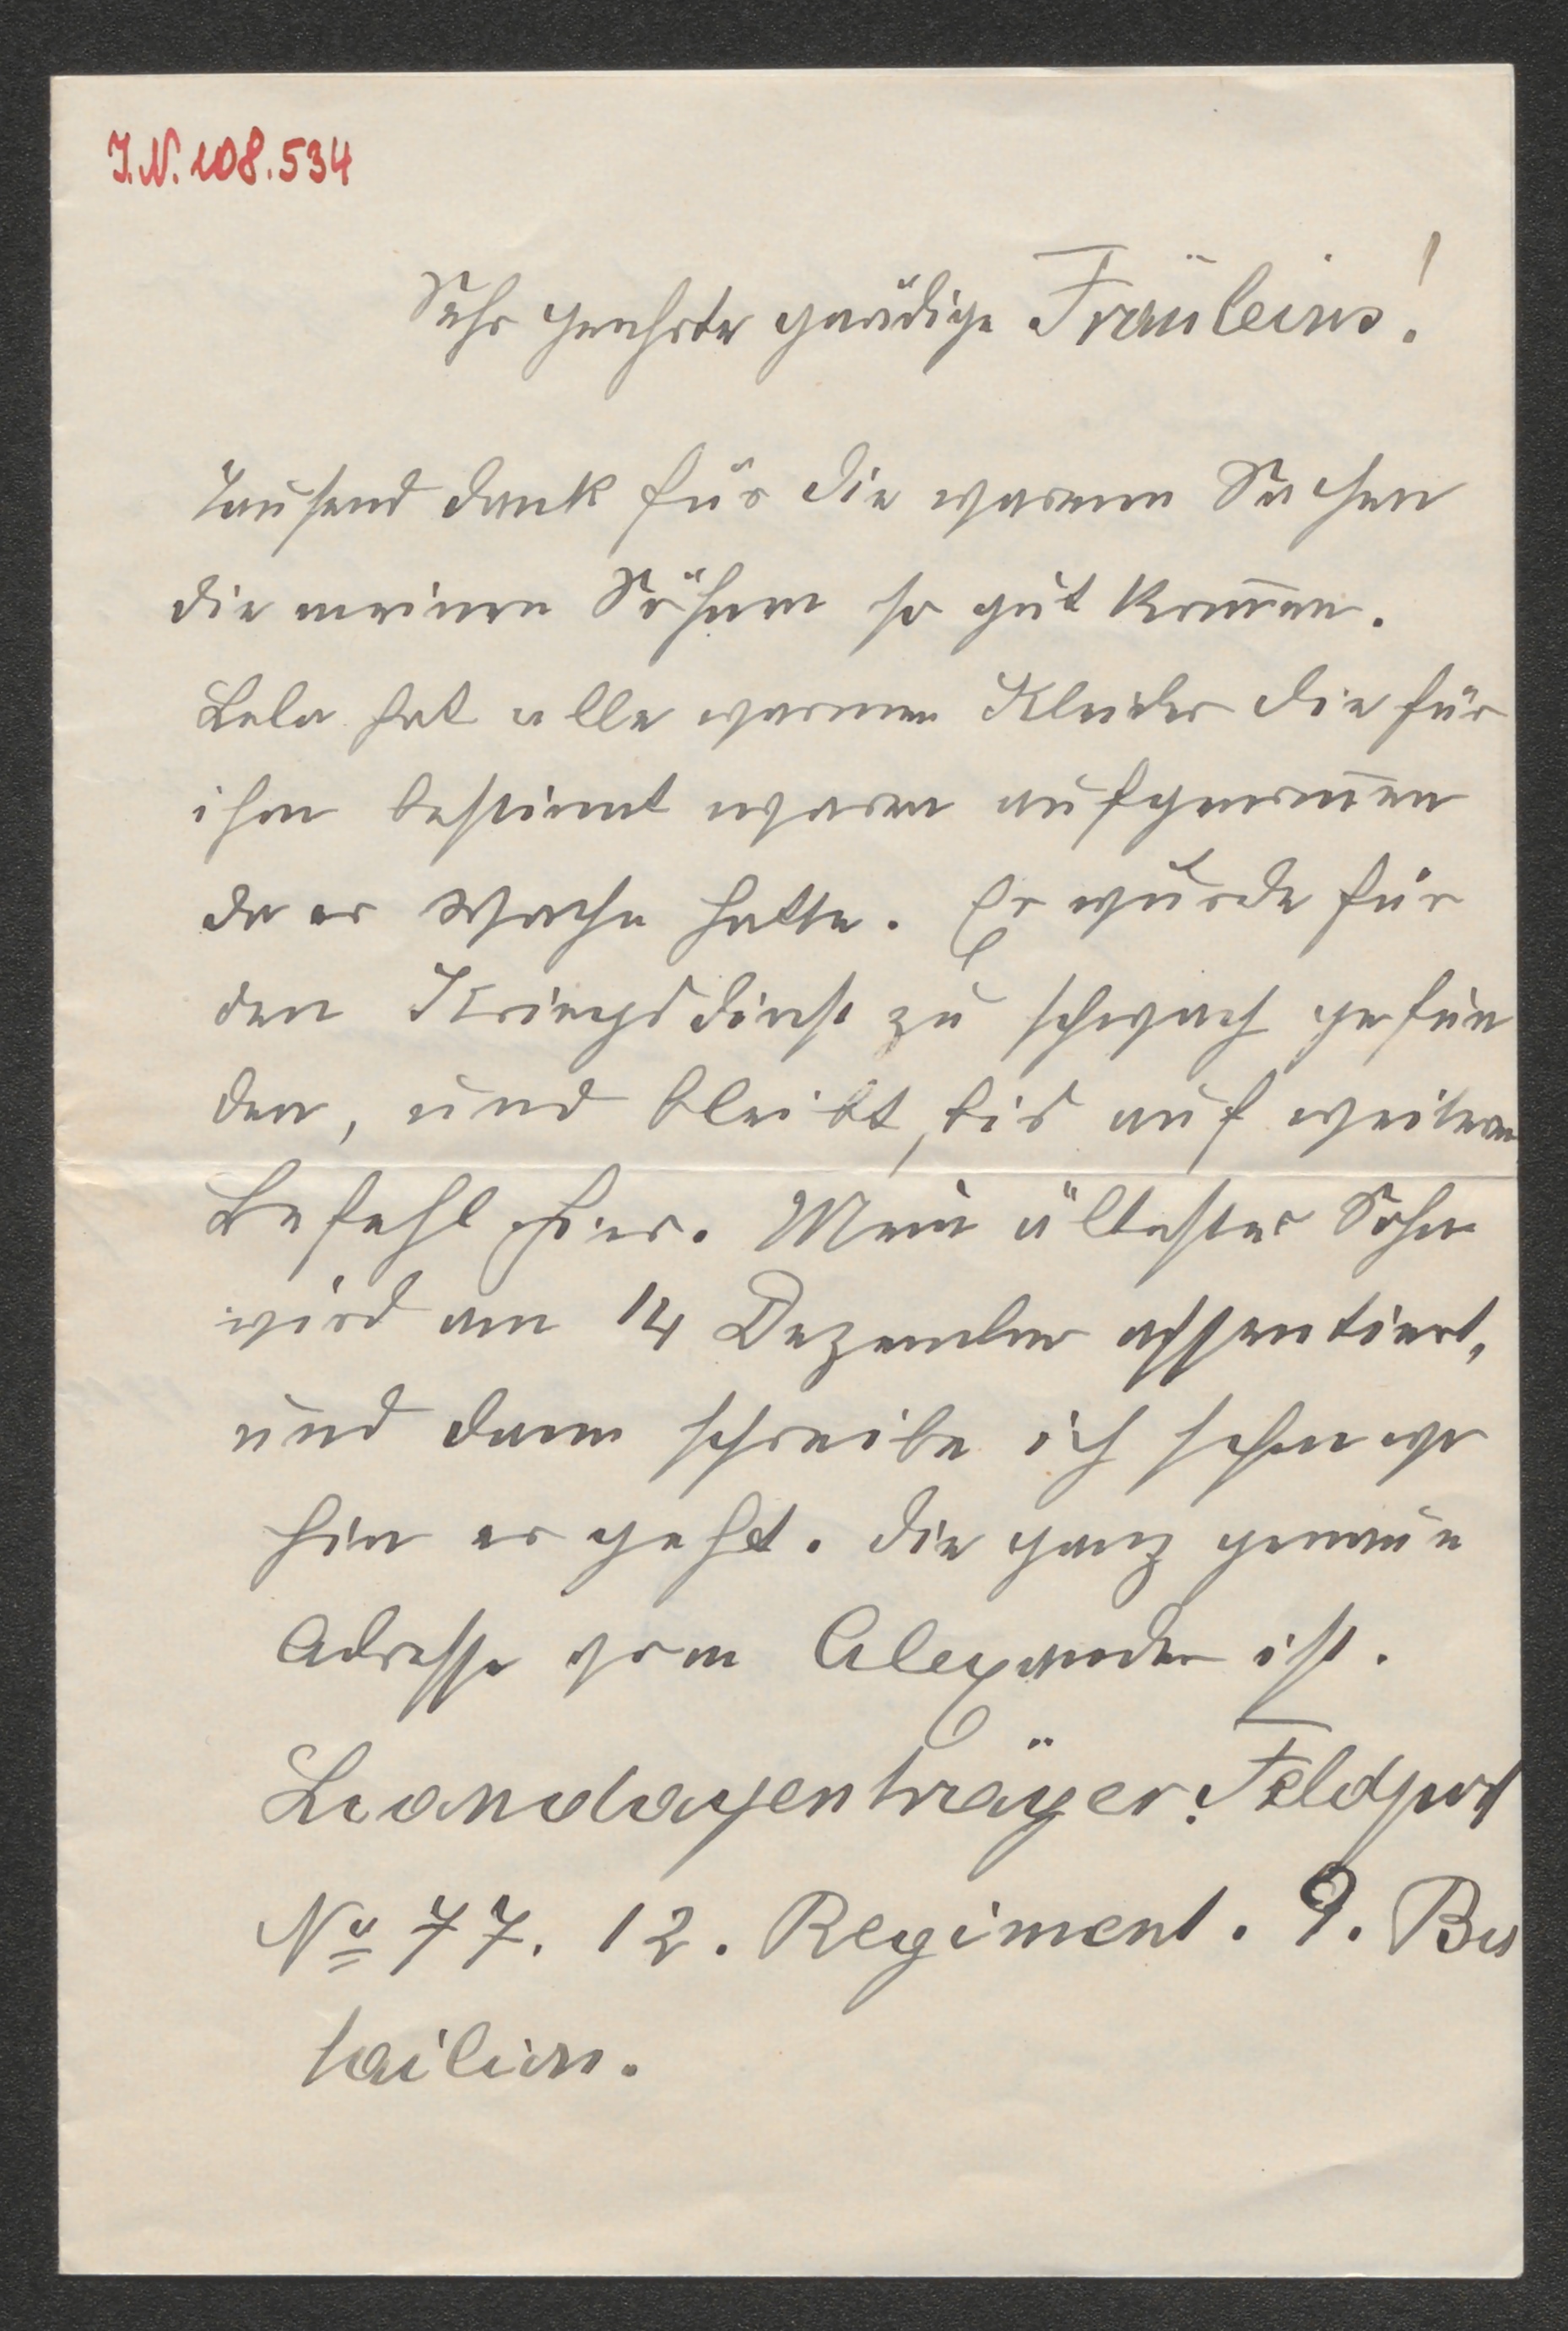 I.N. 108.534
Sehr geehrte gnädige Fräuleins!
Tausend Dank für die warmen Sachen
die meinen Söhnen so gut kom̄en.
Bela hat alle warmen Kleider die für
ihn bestim̄t waren aufgenom̄en
da er Wache hatte. Er wurde für
den Kriegsdinst zu schwach gefun
den, und bleibt, bis auf weiteren
Befehl hier. Mein ältester Sohn
wird am 14 Dezember assentiert,
und dann schreibe ich schon wo
hin er geht. Die ganz genaue
Adresse von Alexander ist.
Bandagenträger. Feldpost
No 77. 12. Regiment. 9. Ba
tailion.